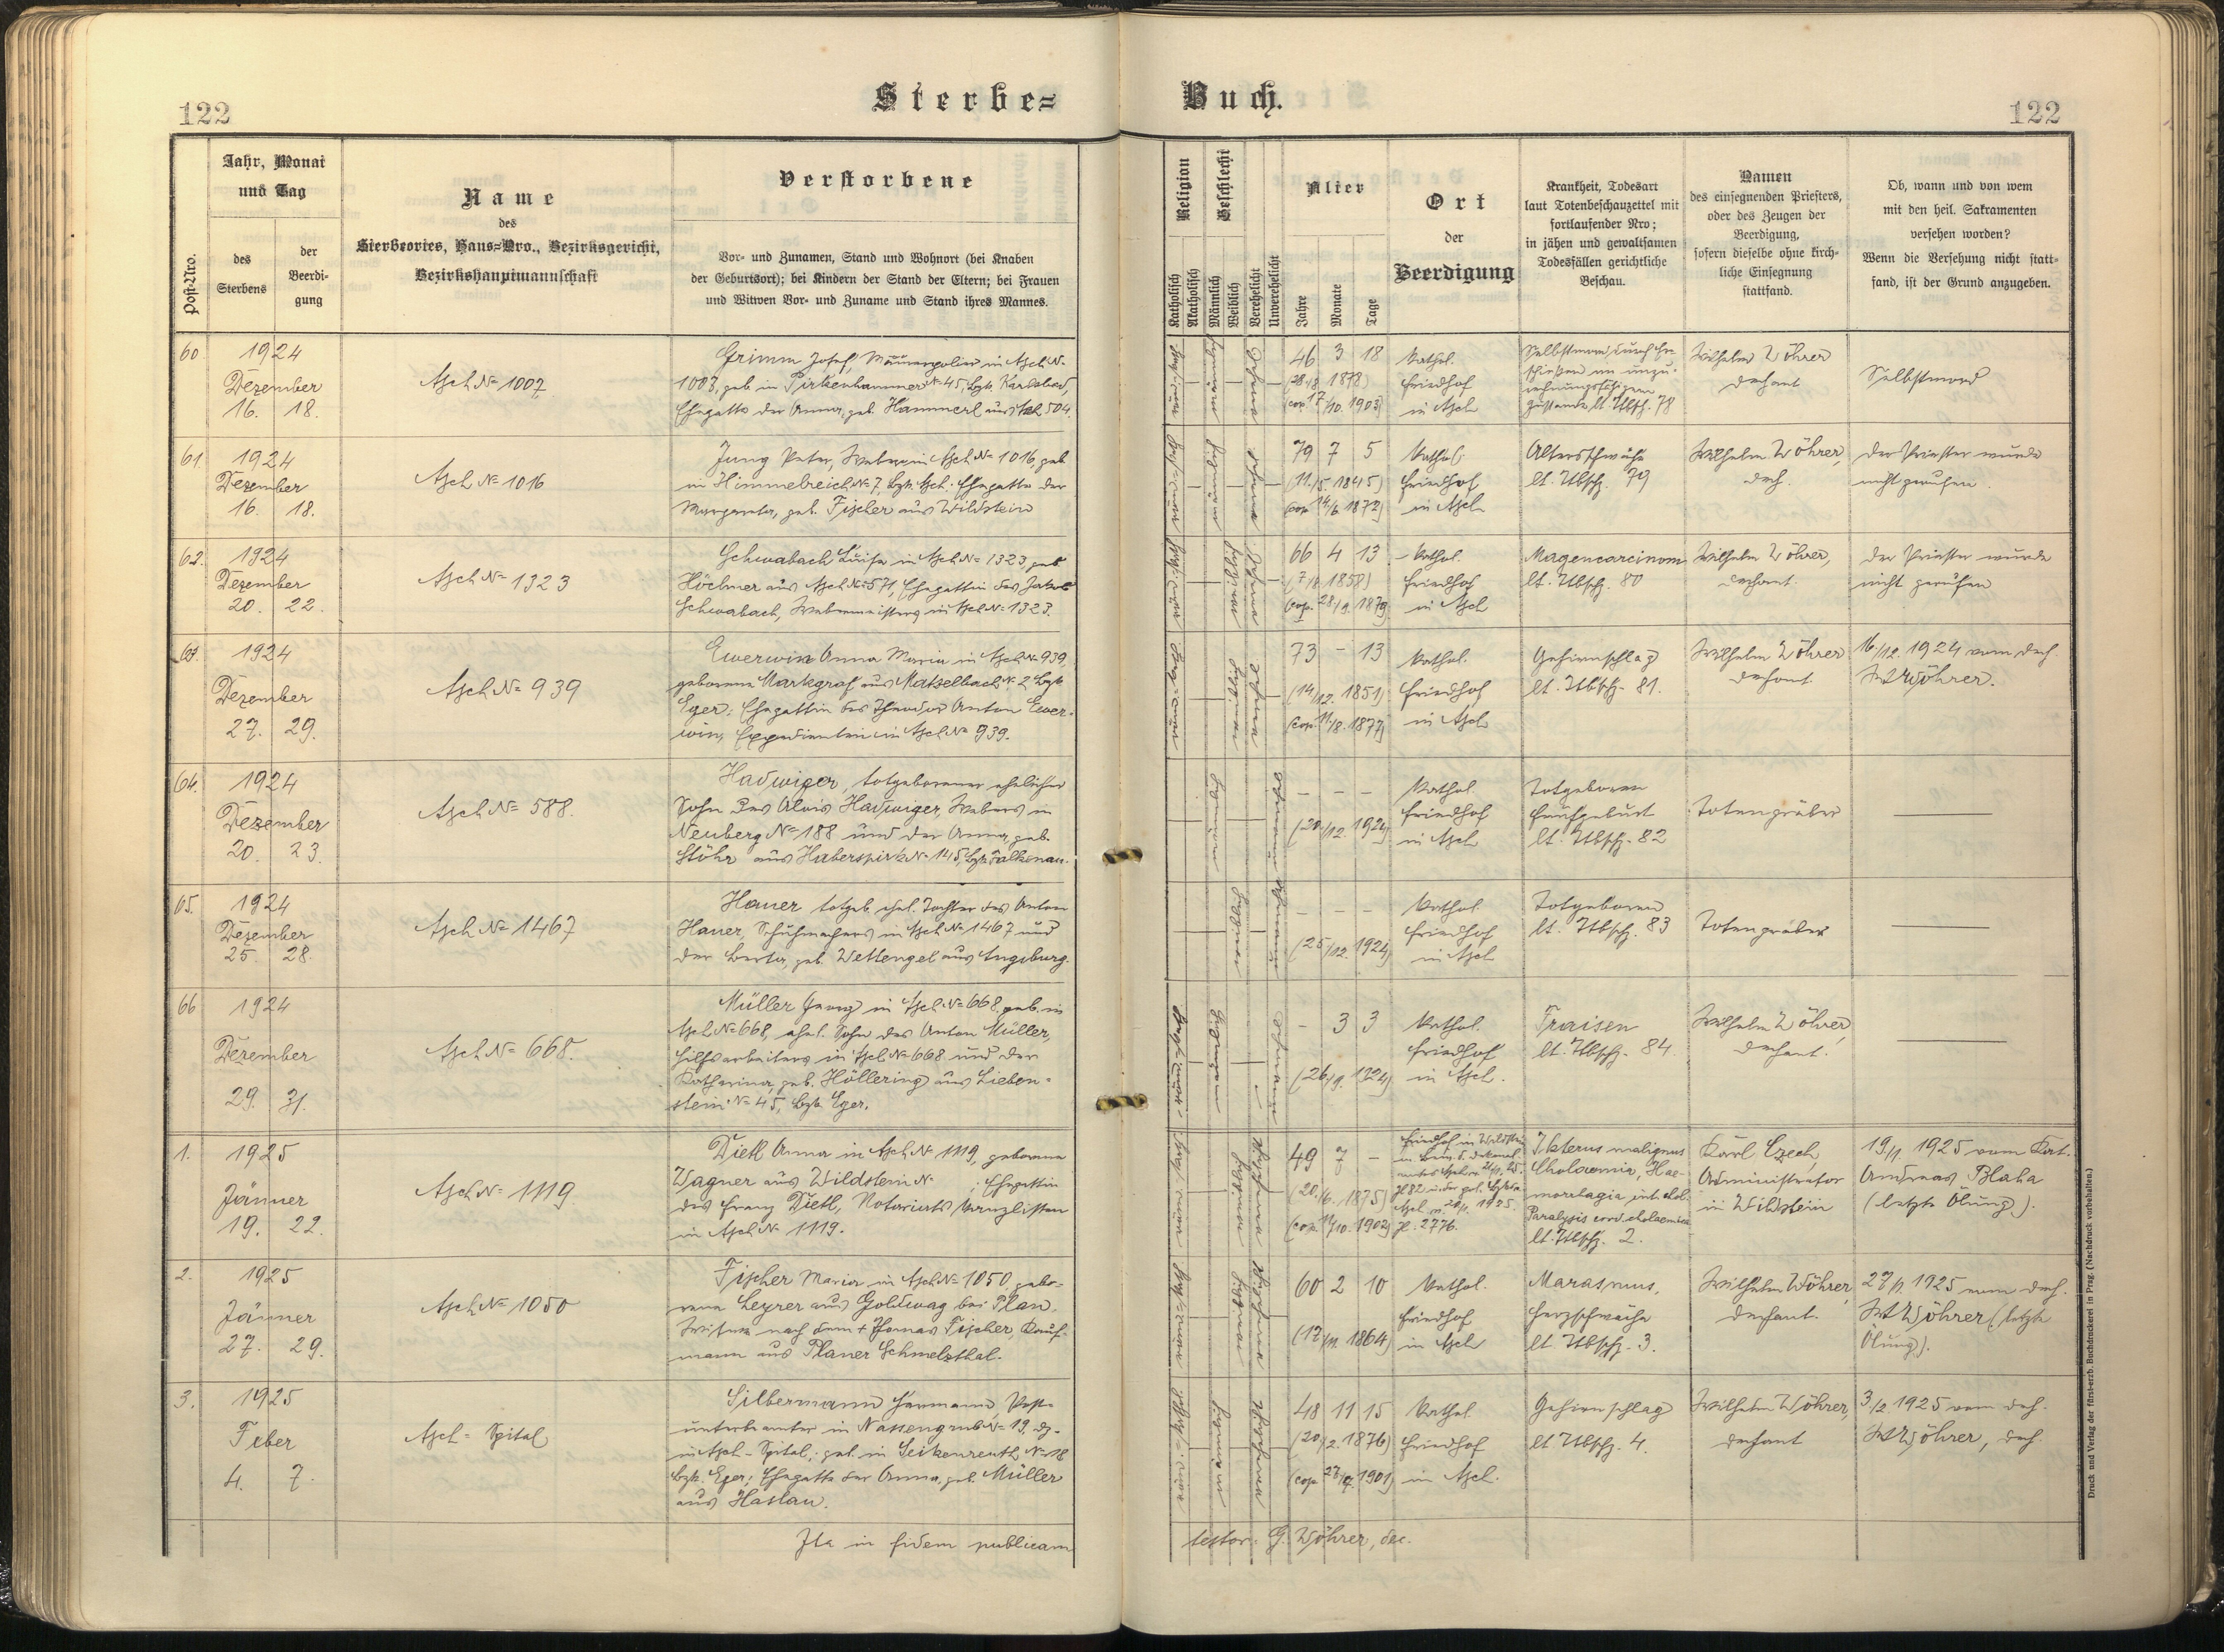 122
Sterbe=
Buch.
122
Post-Nro.
Jahr, Monat
und Tag
des
Sterbens
der
Beerdi-
gung
Name
des
Sterbeortes, Haus=Nro., Bezirksgericht,
Bezirkshauptmannschaft
Verstorbene
Vor- und Zunamen, Stand und Wohnort (bei Knaben
der Geburtsort); bei Kindern der Stand der Eltern; bei Frauen
und Witwen Vor- und Zuname und Stand ihres Mannes.
Religion
Katholisch
Akatholisch
Geschlecht
Männlich
Weiblich
Verehelicht
Unverehelicht
Alter
Jahre
Monate
Tage
Ort
der
Beerdigung
Krankheit, Todesart
laut Totenbeschauzettel mit
fortlaufender Nro;
in jähen und gewaltsamen
Todesfällen gerichtliche
Beschau.
Namen
des einsegnenden Priesters,
oder des Zeugen der
Beerdigung,
sofern dieselbe ohne kirch-
liche Einsegnung
stattfand.
Ob, wann und von wem
mit den heil. Sakramenten
versehen worden?
Wenn die Versehung nicht statt-
fand, ist der Grund anzugeben.
60
1924
Dezember
16. 18.
Asch № 1007
Grimm Josef, Maurerpolier in Asch №
1003, geb. in Pirkenhammer № 45, Bzk. Karlsbad,
Ehegatte der Anna, geb. Hammerl aus Asch 504.
46 3 18
(28/8 1878)
(cop. 17/10. 1903)
Kathol.
Friedhof
in Asch
Selbstmord durch Er-
schießen im unzu-
rechnungsfähigen
Zustande lt. Ttbsch. 78
Wilhelm Wöhrer
Dechant
Selbstmord
61.
1924
Dezember
16. 18.
Asch № 1016
Jung Peter, Weber in Asch № 1016, geb.
in Himmelreich № 7, Bzk. Asch. Ehegatte der
Margareta, geb. Fischer aus Wildstein
79 7 5
(11./5. 1845)
(cop. 14/6. 1872)
Kathol.
Friedhof
in Asch
Altersschwäche
lt. Ttbsch. 79
Wilhelm Wöhrer,
Dech.
Der Priester wurde
nicht gerufen.
62.
1924
Dezember
20. 22.
Asch № 1323
Schwabach Luise in Asch № 1323, geb.
Höchner aus Asch № 571, Ehegattin des Jakob
Schwabach, Webermeisters in Asch № 1323.
66 4 13
1858)
(cop. 28/9. 1879)
Kathol.
Friedhof
in Asch
Magencarcinom
lt. Ttbsch. 80
Wilhelm Wöhrer,
Dechant.
Der Priester wurde
nicht gerufen
63.
1924
Dezember
27. 29.
Asch № 939
Ewerwin Anna Maria in Asch № 939,
geborene Markgraf aus Matzelbach № 2 Bzk.
Eger; Ehegattin des Theodor Anton Ewer-
win, Expedienten in Asch № 939.
73 - 13
(14/12. 1851)
(cop. 11/8. 1877)
Kathol.
Friedhof
in Asch
Gehirnschlag
lt. Ttbsch. 81.
Wilhelm Wöhrer
Dechant
16/12. 1924 vom Dech.
W. Wöhrer.
64.
1924
Dezember
20. 23.
Asch № 588.
Hadwiger, totgeborener ehelicher
Sohn des Alois Hadwiger, Webers in
Neuberg № 188 und der Anna, geb.
Stöhr aus Haberspirk № 145, Bzk. Falkenau.
- - -
(20./12. 1924)
Kathol.
Friedhof
in Asch
Totgeboren
Frühgeburt
lt. Ttbsch. 82
Totengräber
65.
1924
Dezember
25. 28.
Asch № 1467
Hauer totgeb. ehel. Tochter des Anton
Hauer, Schuhmachers in Asch № 1467 und
der Berta, geb. Wettengel aus Augsburg.
- - -
(25/12. 1924)
Kathol.
Friedhof
in Asch
Totgeboren
lt. Ttbsch. 83
Totengräber
66
1924
Dezember
29. 31.
Asch № 668.
Müller Franz in Asch № 668 geb. in
Asch № 668, ehel. Sohn des Anton Müller,
Hilfsarbeiters in Asch № 668 und der
Katharina, geb. Höllering aus Lieben-
stein № 45, Bzk. Eger.
- 3 3
(26/9. 1924)
Kathol.
Friedhof
in Asch.
Fraisen
lt. Ttbsch. 84.
Wilhelm Wöhrer,
Dechant.
1.
1925
Jänner
19. 22.
Asch № 1119
Dietl Anna in Asch № 1119, geborene
Wagner aus Wildstein № ; Ehegattin
des Franz Dietl, Notariats Kanzlisten
in Asch № 1119.
49 7 -
(20./6. 1875)
(cop. 14/10. 1902)
Friedhof in Wildstein
1925.
Zl. 2776.
Ikterus malignus
Cholaemia, Hae-
morrhagia int. chol.
Paralysis cord. cholaemica
lt. Ttbsch. 2.
Karl Czech,
Administrator
in Wildstein
19/1. 1925 vom Kat.
Andreas Blaha
(letzte Ölung).
2.
1925
Jänner
27. 29.
Asch № 1050
Fischer Maria in Asch № 1050 gebo-
rene Leyrer aus Goldwag bei Plan.
Witwe nach dem + Thomas Fischer, Kauf-
mann aus Planer Schmelzthal.
60 2 10
(17/11. 1864)
Kathol.
Friedhof
in Asch
Marasmus,
Herzschwäche
lt. Ttbsch. 3.
Wilhelm Wöhrer,
Dechant.
27/1. 1925 vom Dech.
W. Wöhrer (letzte
Ölung).
3.
1925
Feber
4. 7.
Asch = Spital
Silbermann Hermann, Post-
unterbeamter in Nassengrub № 19, dz.
in Asch - Spital, geb. in Seikenreuth № 18
Bzk. Eger; Ehegatte der Anna, geb. Müller
aus Haslau.
48 11 15
(20/2. 1876)
1901)
Kathol.
Friedhof
in Asch.
Gehirnschlag
lt. Ttbsch. 4.
Wilhelm Wöhrer,
Dechant
3/2 1925 vom Dech.
W. Wöhrer, Dech.
Ita in fidem publicam
testor: G. Wöhrer, dec.
Druck und Verlag der fürst-erzb. Buchdruckerei in Prag. (Nachdruck vorbehalten.)